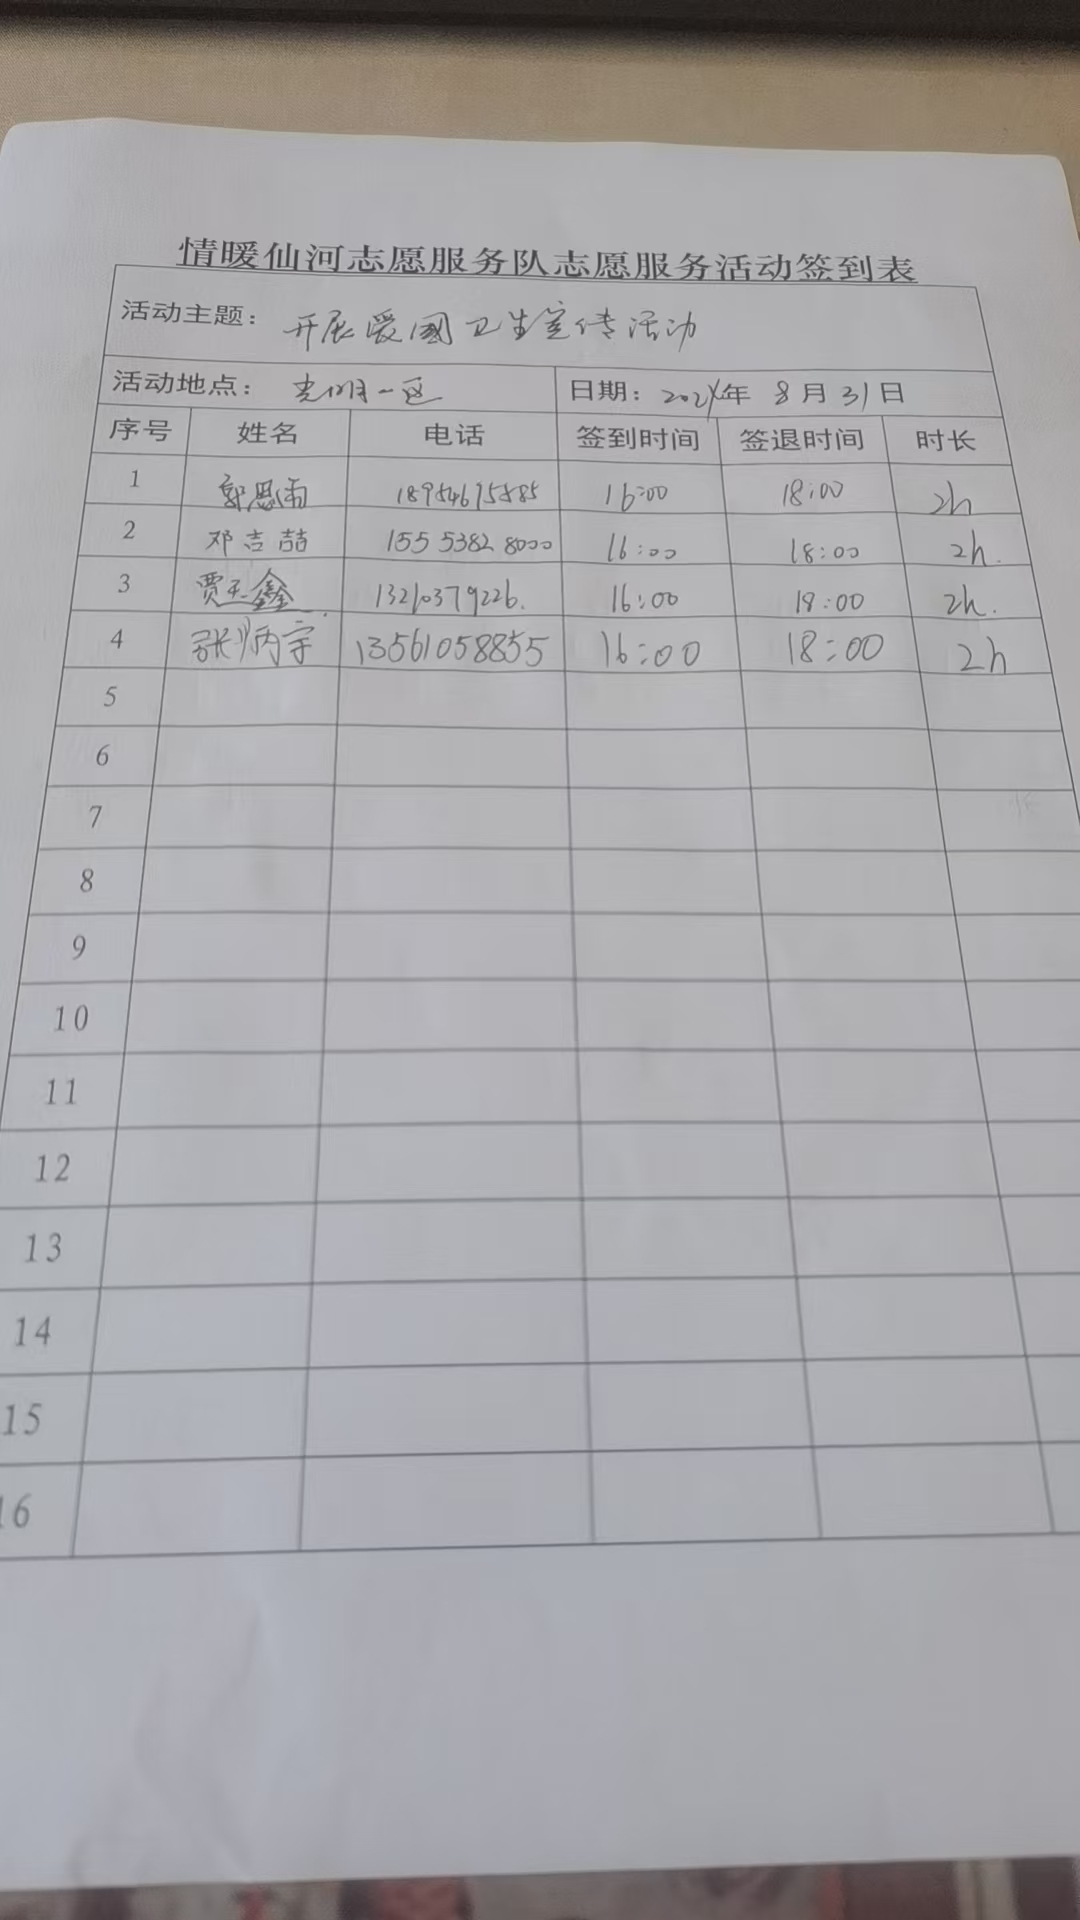 情暖仙河志愿服务队志愿服务活动签到表
活动主题： 开展爱国卫生宣传活动
活动地点： 光明一区 日期：2024年 8月 31日
序号 姓名 电话 签到时间 签退时间 时长
1 郭思雨 16:00 18:00 2h
2 邓吉喆 155 5382 8000 16:00 18:00 2h.
3 贾玉鑫 13210379226. 16:00 18:00 2h.
4 张炳宇 13561058855 16:00 18:00 2h
5
6
7
8
9
10
11
12
13
14
15
16